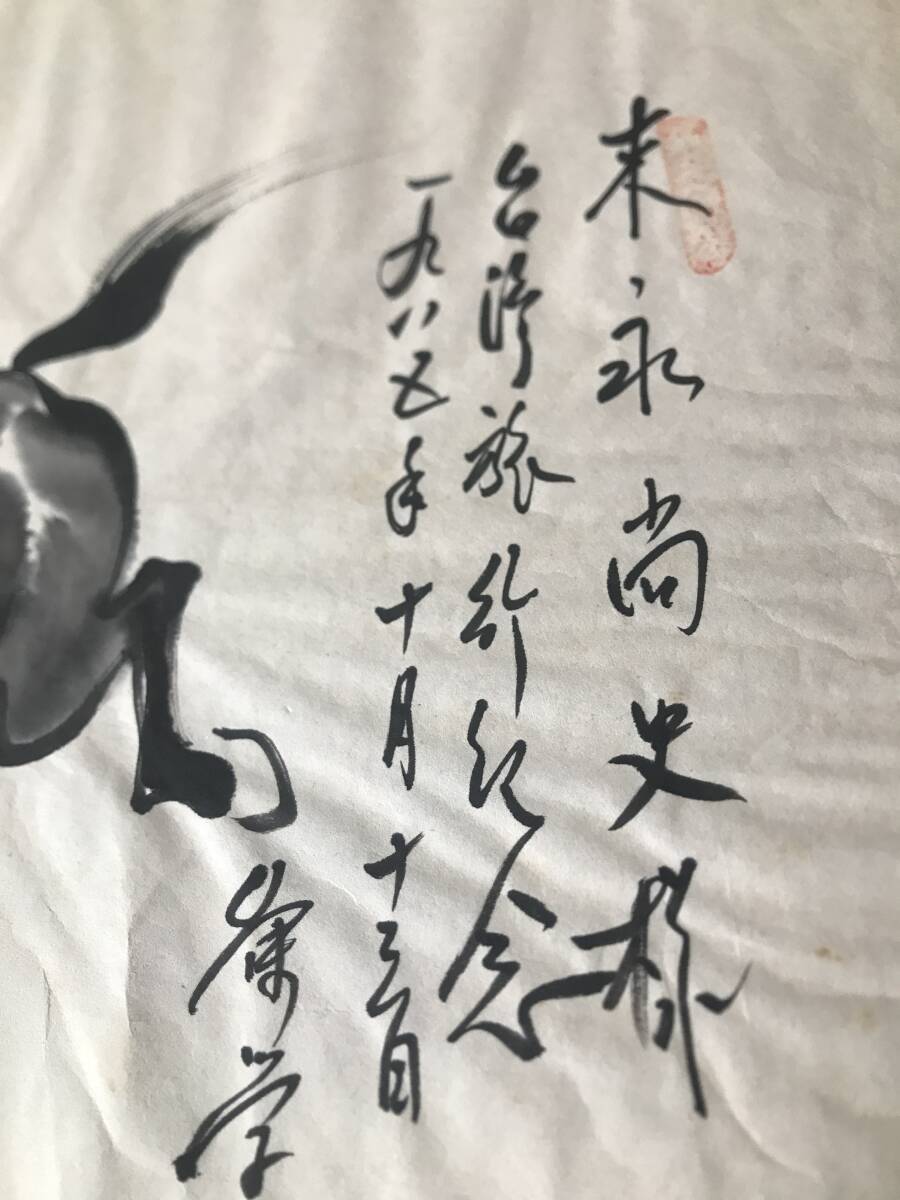 末永尚史様
台湾旅行記念
一九八五年十月十三日
学